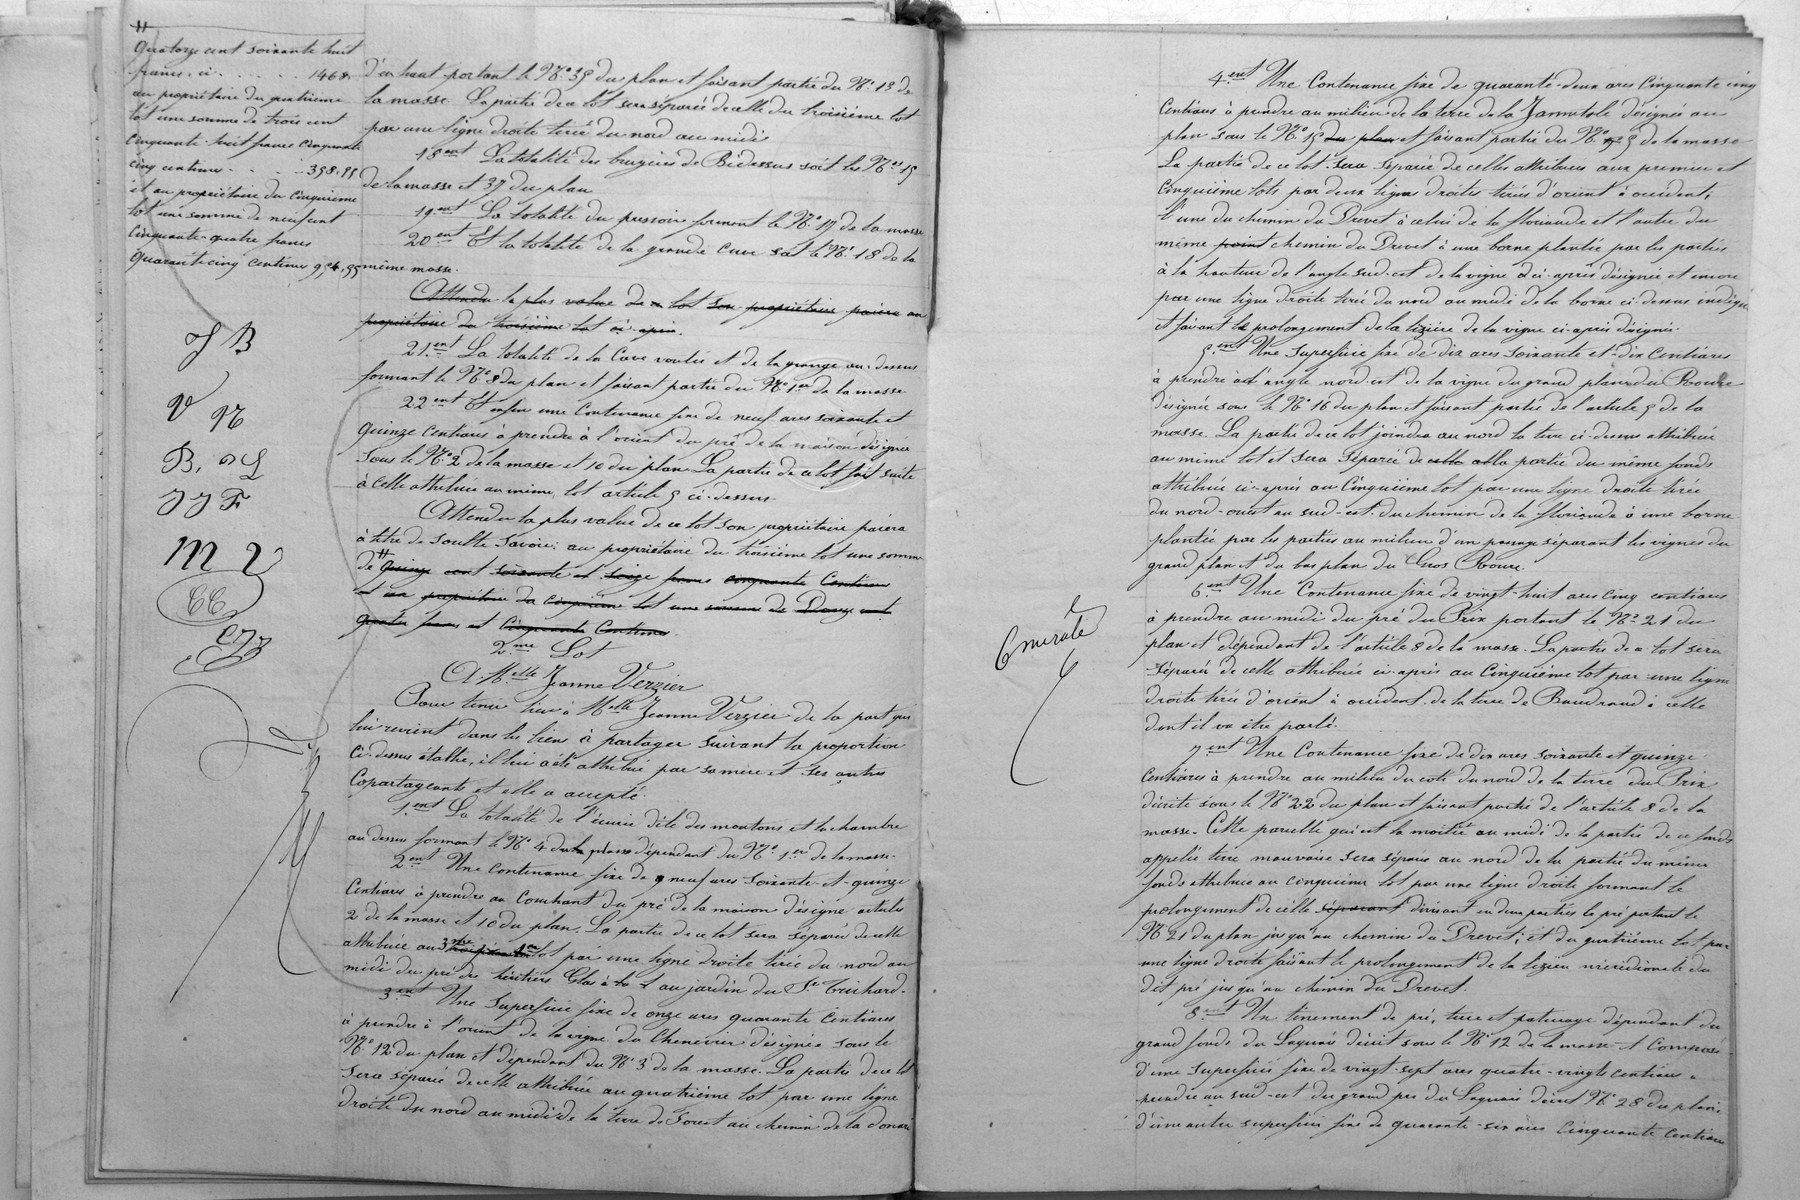 #
quatorze cent soixante huit
francs, ci . . . . . 1468.
au propriétaire du quatrième
lot une somme de trois cent
cinquante-huit francs cinquante
cinq centimes . . . . 358.55
et au propriétaire du cinquième
lot une somme de neuf cent
cinquante-quatre francs
quarante cinq centimes
J B
V
B.
J J F
M
CC
d'en haut portant le N° 35 du plan et faisant partie du N° 13 de
la masse. La partie de ce lot sera séparée de celle du troisième lot
par une ligne droite tirée du nord au midi
18ent La totalité des bruyères de Bédessus soit les Nos 15
de la masse et 37 du plan
19ent La totalité du pressoir formant le N° 17 de la masse
20ent Et la totalité de la grande cuve soit le N° 18 de la
même masse.
Attendu la plus value de ce lot son propriétaire paiera au
propriétaire du troisième lot ci-après.
21ent La totalité de la cave voutée et de la grange au-dessus
formant le N° 8 du plan et faisant partie du N° 1er de la masse
22ent Et enfin une contenance fixe de neuf ares soixante et
quinze centiares à prendre à l'orient du pré de la maison désignée
sous le N° 2 de la masse et 10 du plan. La partie de ce lot fait suite
à celle attribuée au même lot article 5 ci-dessus.
Attendu la plus value de ce lot son propriétaire paiera
à titre de soulte savoir: au propriétaire du troisième lot une somme
de # quinze cent soixante et seize francs cinquante centimes
et au propriétaire du cinquième lot une somme de
quatre francs et cinquante centimes.
2me Lot
A Melle Jeanne Verzier
Pour tenir lieu à Melle Jeanne Verzier de la part qui
lui revient dans les biens à partager suivant la proportion
ci-dessus établie, il lui a été attribué par sa mère et ses autres
copartageants et elle a accepté.
1ent La totalité de l'écurie dite des moutons et la chambre
au dessus formant le N° 4 du plan dépendant du N° 1er de la masse.
2ent Une contenance fixe de neuf ares soixante et quinze
centiares à prendre au couchant du pré de la maison désigné articles
2 de la masse et 10 du plan. La partie de ce lot sera séparée de celle
attribuée au lot par une ligne droite tirée du nord au
midi du pré des héritiers au jardin du Sr Trichard.
3ent Une superficie fixe de onze ares quarante centiares
à prendre à l'orient de la vigne du Chenevier désignée sous le
N° 12 du plan et dépendant du N° 3 de la masse. La partie de ce lot
sera séparée de celle attribuée au quatrième lot par une ligne
droite du nord au midi de la terre de au chemin de la
4ent Une contenance fixe de quarante-deux ares cinquante cinq
centiares à prendre au milieu de la terre de la désignée au
plan sous le N° 15 du plan et faisant partie du N° 5 de la masse
La partie de ce lot sera séparée de celles attribuées aux premier et
cinquième lots par deux lignes droites tirées d'orient à occident,
l'une du chemin du Drevet à celui de la et l'autre du
même point chemin du Drevet à une borne plantée par les parties
à la hauteur de l'angle sud-est de la vigne ci-après désignée et encore
par une ligne droite tirée du nord au midi de la borne ci-dessus indiquée
et faisant le prolongement de la lizière de la vigne ci-après désignée.
5ent Une superficie fixe de dix ares soixante et dix centiares
à prendre à l'angle nord-est de la vigne du grand plan du
désignée sous le N° 16 du plan et faisant partie de l'article 5 de la
masse. La partie de ce lot joindra au nord la terre ci-dessus attribuée
au même lot et sera séparée de celle de la partie du même fonds
attribuée ci-après au cinquième lot par une ligne droite tirée
du nord-ouest au sud-est du chemin de la à une borne
plantée par les parties au milieu d'un passage séparant les vignes du
grand plan et du bas plan du Gros
6ent Une contenance fixe de vingt-huit ares cinq centiares
à prendre au midi du pré du Prix portant le N° 21 du
plan et dépendant de l'article 8 de la masse. La partie de ce lot sera
séparée de celle attribuée ci-après au cinquième lot par une ligne
droite tirée d'orient à occident de la terre de Baudrand à celle
dont il va être parlé.
7ent Une contenance fixe de dix ares soixante et quinze
centiares à prendre au milieu du coté du nord de la terre du Prix
décrite sous le N° 22 du plan et faisant partie de l'article 8 de la
masse. Cette parcelle qui est la moitié au midi de la partie de ce fonds
appelée terre mauvaise sera séparée au nord de la partie du même
fonds attribuée au cinquième lot par une ligne droite formant le
prolongement de celle séparant divisant en deux parties le pré portant le
N° 21 du plan jusqu'au chemin du Drevet, et du quatrième lot par
une ligne droite faisant le prolongement de la lizière méridionale du
dit pré jusqu'au chemin du Drevet.
8ent Un tènement de pré, terre et paturage dépendant du
grand fonds du décrit sous le N° 12 de la masse et composé
d'une superficie fixe de vingt-sept ares quatre-vingts centiares à
prendre au sud-est du grand pré du décrit N° 28 du plan,
d'une autre superficie fixe de quarante-six ares cinquante centiares